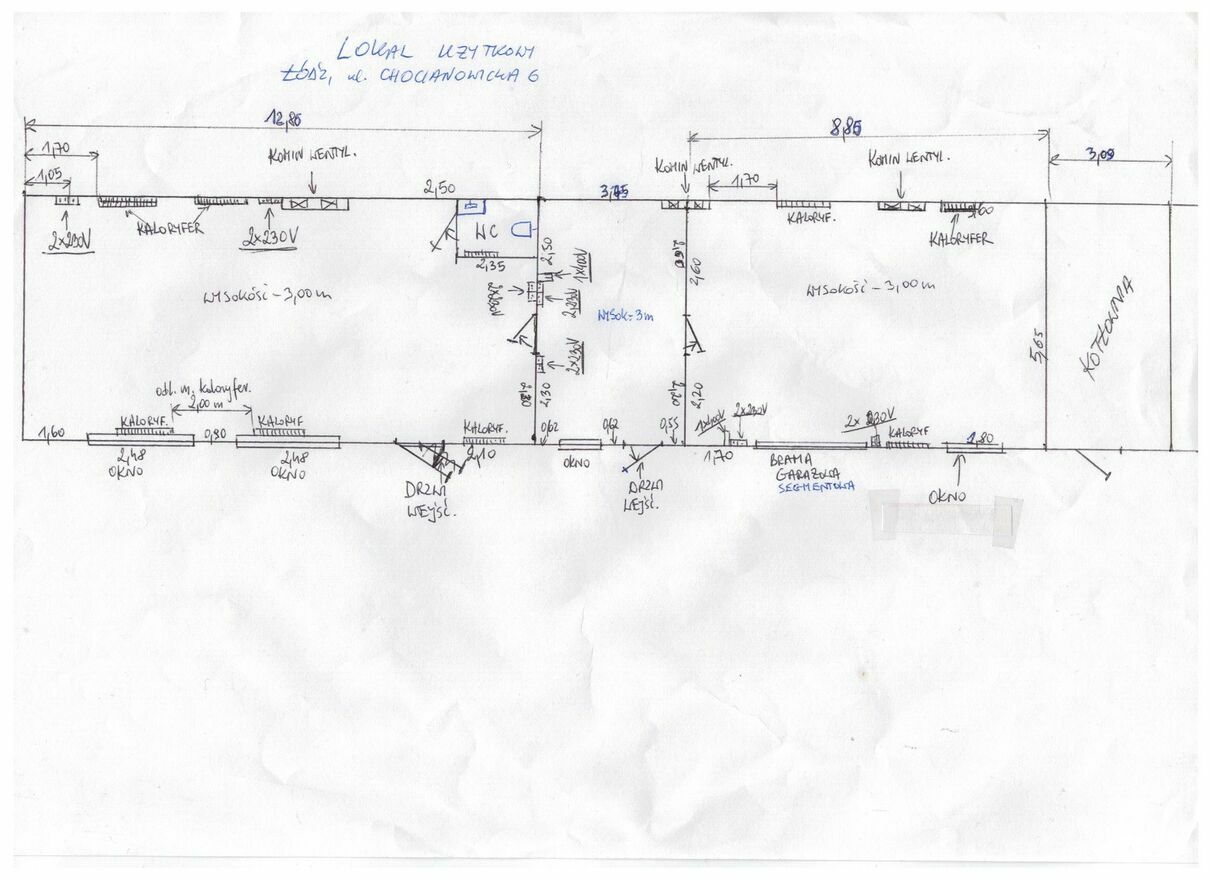 LOKAL UŻYTKOWY
ŁÓDŹ, ul. CHOCIANOWICKA 6
12,85
8,85
1,70
KOMIN WENTYL.
KOMIN WENTYL.
KOMIN WENTYL.
3,09
1,05
2,50
1,70
KALORYFER
WC
KALORYF.
KALORYFER
2x230V
2x230V
2,35
2,50
1x400V
2,60
WYSOKOŚĆ - 3,00 m
2x230V
2x230V
WYSOK - 3m
WYSOKOŚĆ - 3,00 m
KOTŁOWNIA
2x230V
5,65
odl. m. kaloryfer.
2,00 m
2,30
2,20
KALORYF.
KALORYF
KALORYF.
0,62
0,62
0,55
1x400V
2x230V
2x 230V
KALORYF
1,60
0,80
1,80
2,48
OKNO
2,48
OKNO
2,10
OKNO
1,70
BRAMA
GARAŻOWA
SEGMENTOWA
DRZWI
WEJŚĆ.
DRZWI
WEJŚĆ.
OKNO